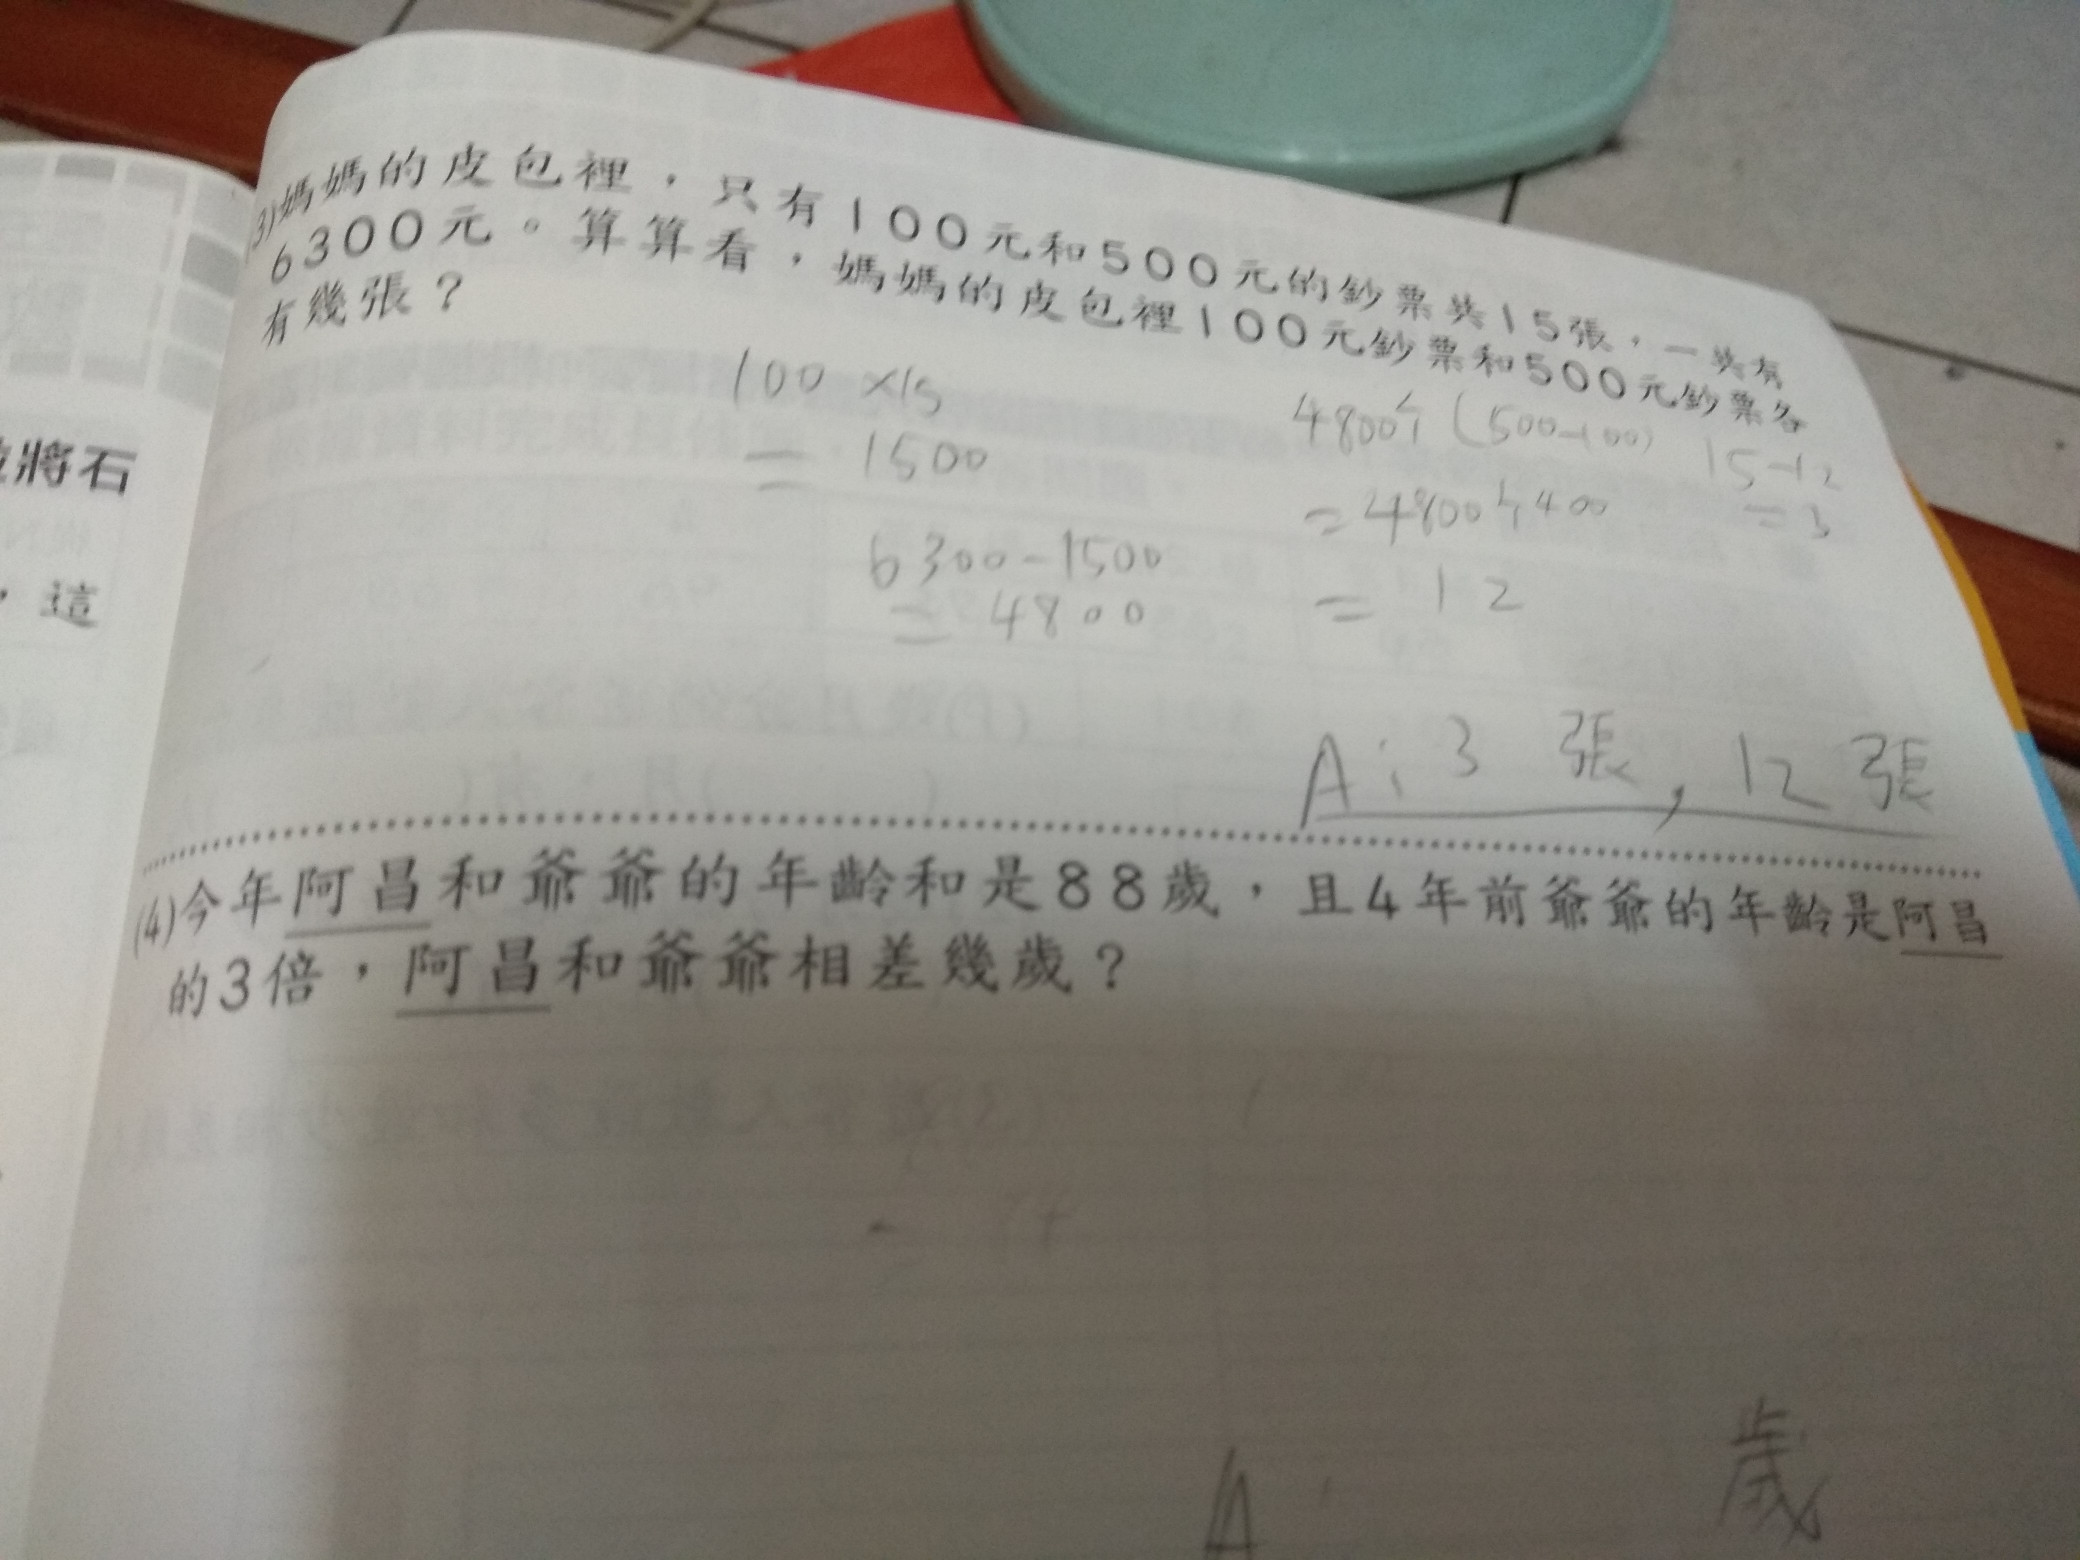 (3)媽媽的皮包裡，只有100元和500元的鈔票共15張，一共有
6300元。算算看，媽媽的皮包裡100元鈔票和500元鈔票各
有幾張？
100 ×15
= 1500
6300-1500
= 4800
4800÷(500-100)
=4800÷400
= 12
15-12
=3
A: 3 張, 12 張
將石
，這
(4)今年阿昌和爺爺的年齡和是88歲，且4年前爺爺的年齡是阿昌
的3倍，阿昌和爺爺相差幾歲？
A: 歲